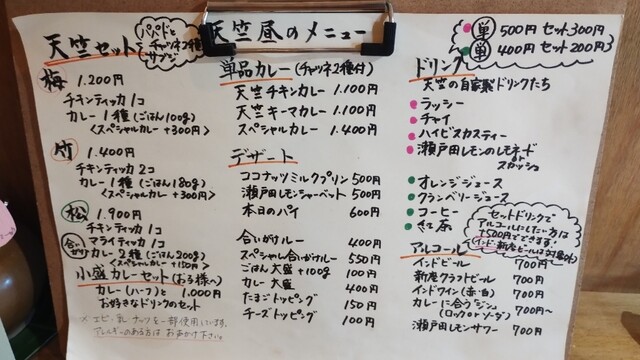 天竺昼のメニュー
天竺セット
パパドと
チャツネ2種
サブジ
梅 1.200円
チキンティッカ 1コ
カレー 1種 (ごはん100g)
<スペシャルカレー +300円>
竹 1.400円
チキンティッカ 2コ
カレー 1種 (ごはん180g)
<スペシャルカレー +300円>
松 1.900円
チキンティッカ 1コ
マライティッカ 1コ
合いがけ カレー 2種 (ごはん200g)
<スペシャルカレー +150円>
小盛カレーセット (お子様へ)
カレー (ハーフ) と 1,000円
お好きなドリンクのセット
※ エビ、乳、ナッツを一部使用しています。
アレルギーのある方は お声がけ下さい
単品カレー (チャツネ2種付)
天竺チキンカレー 1.100円
天竺キーマカレー 1.100円
スペシャルカレー 1.400円
デザート
ココナッツミルクプリン 500円
瀬戸田レモンシャーベット 500円
本日のパイ 600円
合いがけルー 400円
スペシャル合いがけルー 550円
ごはん大盛 +100g 100円
カレー大盛 400円
たまごトッピング 150円
チーズトッピング 100円
単 500円 セット300円
単 400円 セット200円
ドリンク
天竺の自家製ドリンクたち
ラッシー
チャイ
ハイビスカスティー
瀬戸田レモンのレモネード
or
スカッシュ
オレンジジュース
クランベリージュース
コーヒー
紅茶
セットドリンクで
アルコールにしたい方は
+500円でできます。
(インド・新座ビールは対象外)
アルコール
インドビール 700円
新座クラフトビール 700円
インドワイン (赤・白) 700円
カレーに合うジン 700円~
(ロック or ソーダ)
瀬戸田レモンサワー 700円